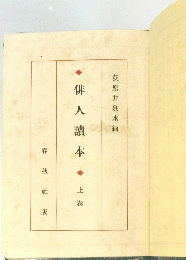 荻原井泉水編
◆俳人讀本◆上卷
春秋社版